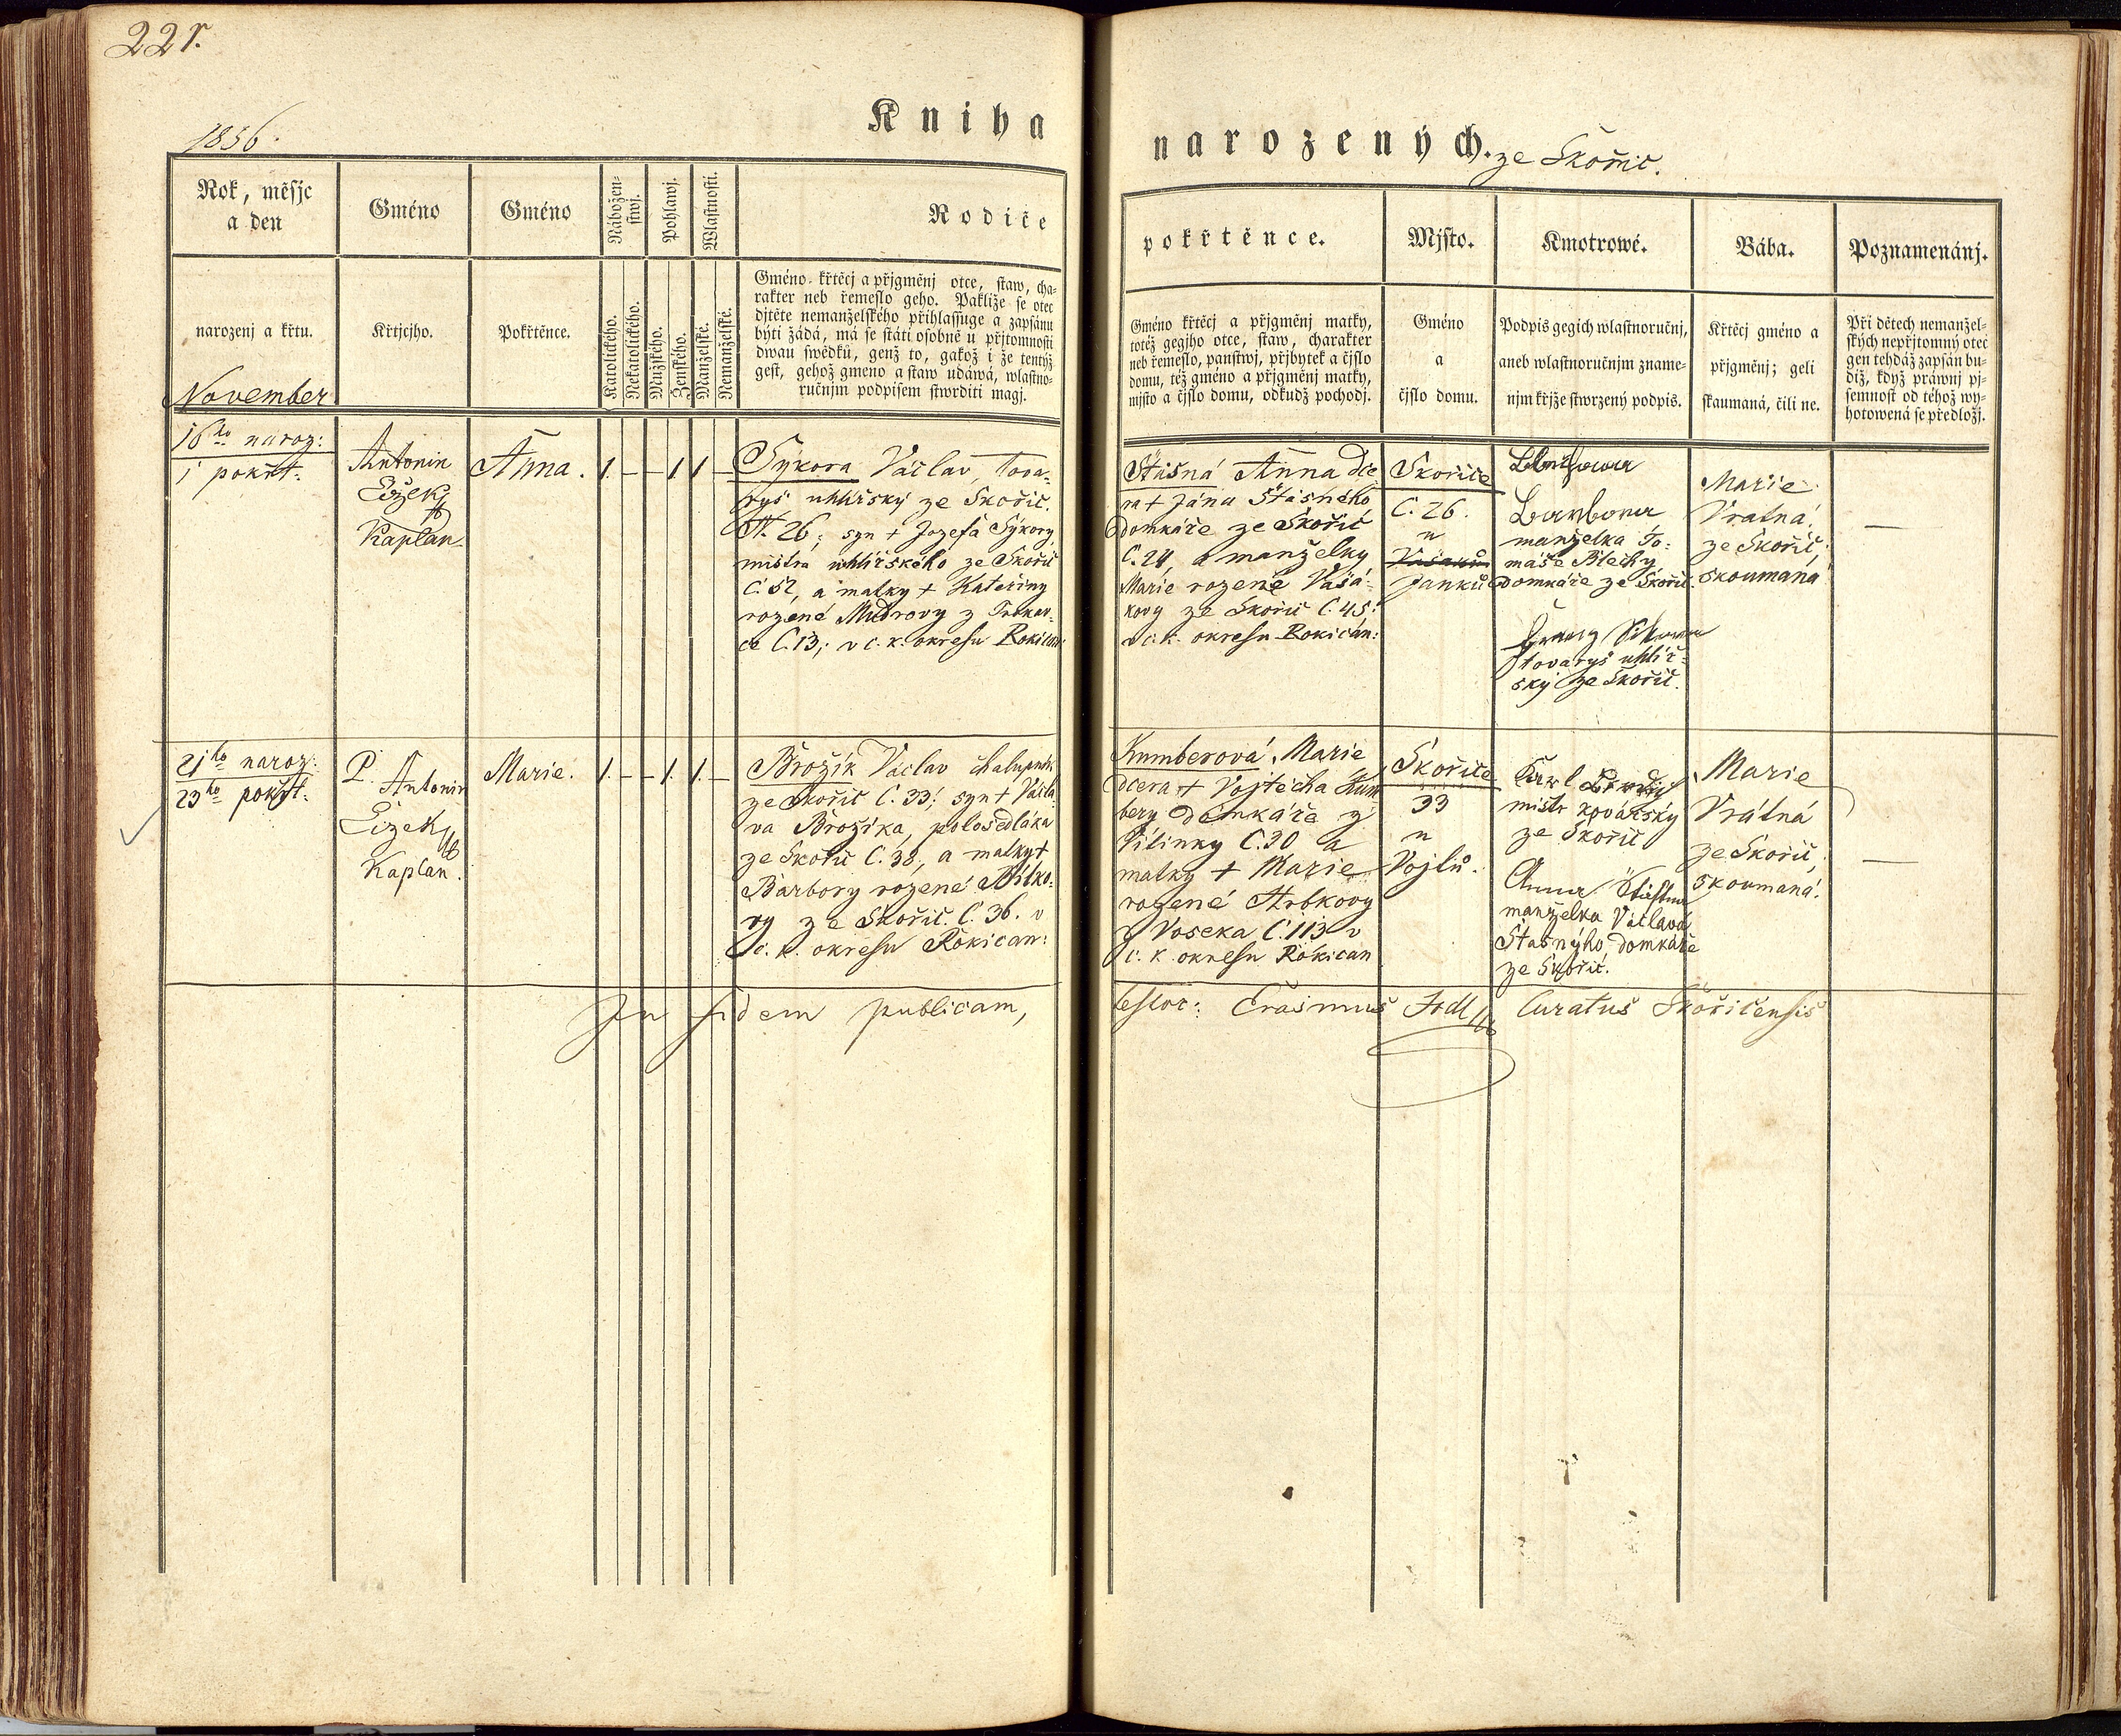 221.
1856.
Kniha
narozených. ze Skořic.
Rok, měsjc
a den
Gméno
Gméno
Nábožen-
stwj.
Pohlawj.
Wlastnosti.
Rodiče
pokřtěnce.
Mjsto.
Kmotrowé.
Bába.
Poznamenánj.
narozenj a křtu.
Křtjcjho.
Pokřtěnce.
Katolického.
Nekatolického.
Mužského.
Ženského.
Manželské.
Nemanželské.
Gméno křtěcj a přjgměnj otce, staw, cha-
rakter neb řemeslo geho. Pakliže se otec
djtěte nemanželského přihlassuge a zapsánu
býti žádá, má se státi osobně u přjtomnosti
dwau swědků, genž to, gakož i že tentýž
gest, gehož gméno a staw udáwá, wlastno-
ručnjm podpisem stwrditi magj.
Gméno křtěcj a přjgměnj matky,
totéž gegjho otce, staw, charakter
neb řemeslo, panstwj, přjbytek a čjslo
domu, též gméno a přjgměnj matky,
mjsto a čjslo domu, odkudž pochodj.
Gméno
a
čjslo domu.
Podpis gegich wlastnoručnj,
aneb wlastnoručnjm zname-
njm křjže stwrzený podpis.
Křtěcj gméno a
přjgměnj; geli
skaumaná, čili ne.
Při dětech nemanžel-
ských nepřjtomný otec
gen tehdáž zapsán bu-
diž, když práwnj pj-
semnost od téhož wy-
hotowená se předložj.
November
16ho naroz:
i pokřt:
Antonin
Čížek
Kaplan
Anna.
1. — — 1 1 —
Sýkora Václav, tova-
ryš uhlířský ze Skořic.
N. 26; syn + Jozefa Sýkory,
mistra uhlířského ze Skořic
C. 52, a matky + Kateřiny
rozené Mudrovy z
C. 13; v c. k. okresu Rokican:
Stasná Anna dce
ra + Jana Štasného
Domkáře ze Skořic
C. 24, a manželky
Marie rozené Vašá-
kovy ze Skořic C. 45:
v c. k. okresu Rokican:
Skořice
C. 26.
u
Janků
Barbora
manželka To-
máše Blechy
Domkáře ze Skořic.
tovaryš uhlíř-
ský ze Skořic.
Marie
Vratná
ze Skořic;
skoumaná
—
21ho naroz:
23ho pokřt:
P. Antonin
Čížek
Kaplan.
Marie.
1. — — 1. 1. —
Brožík Václav chalupník
ze Skořic C. 33; syn + Václa-
va Brožíka, polosedláka
ze Skořic C. 38, a matky +
Barbory rozené
ze Skořic C. 36. v
c. k. okresu Rokican:
Kumberová Marie
dcera + Vojtěcha Kum
bery domkáře z
Vílinky C. 30 a
matky + Marie
rozené Hrbkovy
z Voseka C. 113 v
c. k. okresu Rokican
Skořice
33
u
Vojtů.
Karl
mistr kovářský
ze Skořic
Anna Stastna
manželka Václava
Štasnýho domkáře
ze Skořic.
Marie
Vrátná
ze Skořic,
skoumaná.
—
In fidem publicam,
testor: Erasmus Jodl Curatus Skořicensis